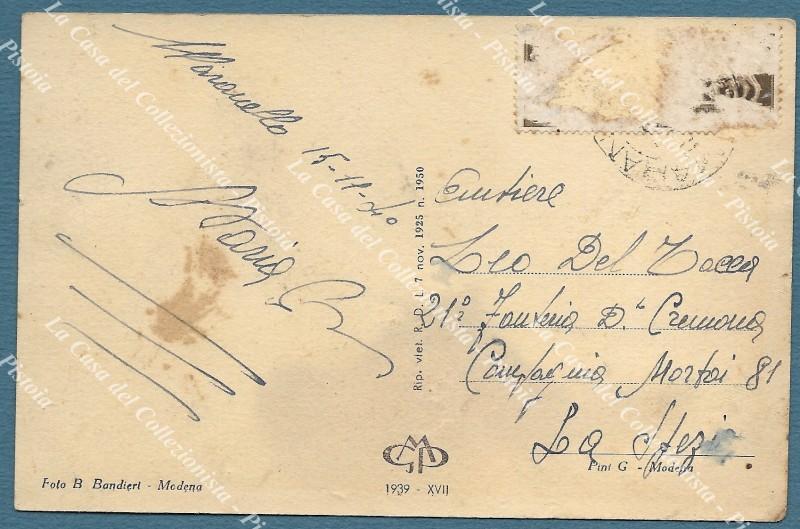 Maranello
15-11-40
Maria
Rip. viet. R. D. L. 7 nov. 1925 n. 1950
Cantiere
Leo Del Tacca
21° Fanteria D.ᵉ Cremona
Compagnia Mortai 81
La Spezia
Foto B Bandieri - Modena
1939 - XVII
G - Modena
La Casa del Collezionista - Pistoia